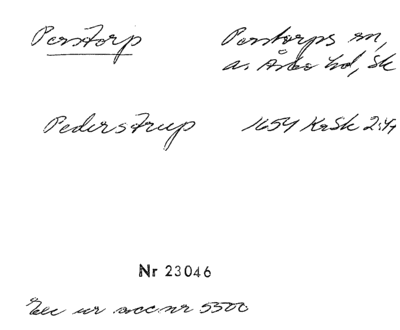 Perstorp
Perstorps sn,
N. Åsbo hd, Sk
Pederstrup 1654 KrSk 2:47
Nr 23046
Exc ur acc nr 5500